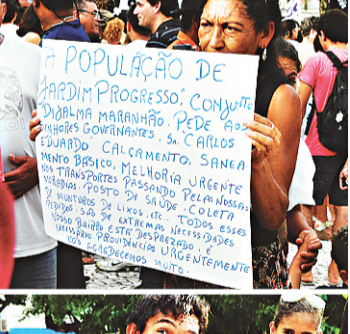 "A POPULAÇÃO DE
JARDIM PROGRESSO", CONJUNTO
DJALMA MARANHÃO. PEDE AOS
SENHORES GOVERNANTES. Sr. CARLOS
EDUARDO CALÇAMENTO. SANEA
MENTO BÁSICO. MELHORIA URGENTE
NOS TRANSPORTES PASSANDO PELA NOSSAS
MORADIAS. POSTO DE SAÚDE. COLETA
DE MUNTUROS DE LIXOS. ETC.. TODOS ESSES
PEDIDOS. SÃO DE EXTREMAS NECESSIDADES
NOSSO BAIRRO ESTÁ DESPREZADO.
NECESSÁRIO PROVIDÊNCIAS URGENTEMENTE
NÓS AGRADECEMOS MUITO.